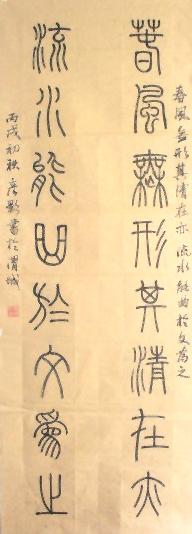 春風無形其清在亦
流水能曲於文為之
春風無形其清在亦 流水能曲於文為之
丙戌初秋 彦影書於渭城